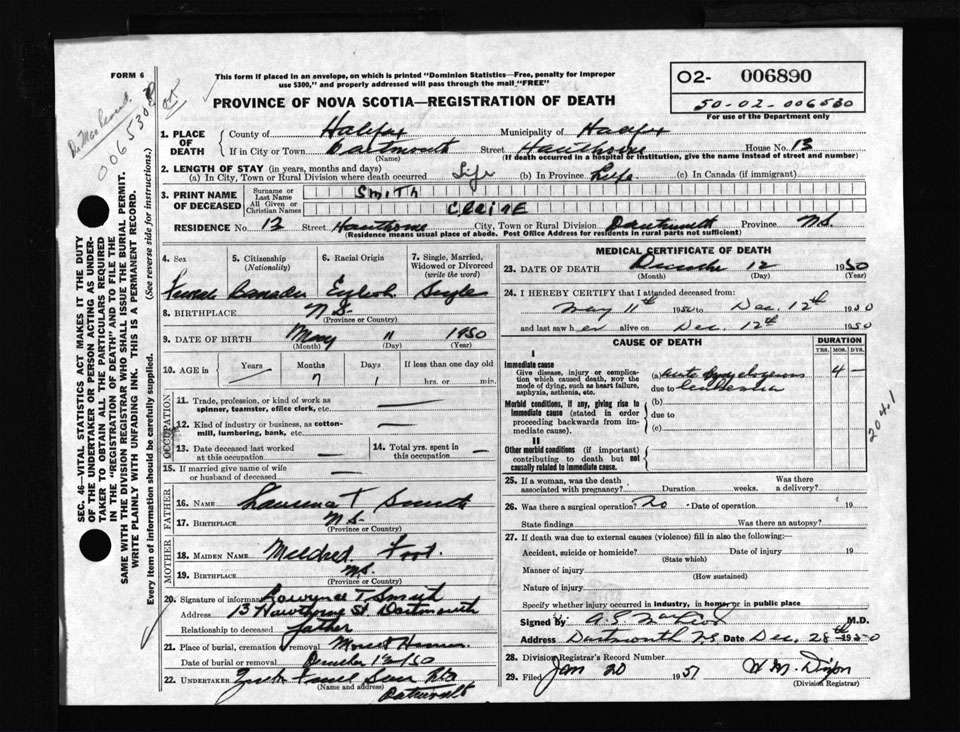 FORM 6
This form if placed in an envelope, on which is printed "Dominion Statistics—Free, penalty for improper
use $300," and properly addressed will pass through the mail "FREE"
PROVINCE OF NOVA SCOTIA—REGISTRATION OF DEATH
O2- 006890
50-02-006530
For use of the Department only
006530
1. PLACE OF DEATH
County of Halifax Municipality of Halifax
If in City or Town Dartmouth Street Hawthorne House No. 13
(Name) (If death occurred in a hospital or institution, give the name instead of street and number)
2. LENGTH OF STAY (in years, months and days)
(a) In City, Town or Rural Division where death occurred Life (b) In Province Life (c) In Canada (if immigrant)
3. PRINT NAME OF DECEASED
Surname or Last Name SMITH
All Given or Christian Names CLAIRE
RESIDENCE No. 13 Street Hawthorne City, Town or Rural Division Dartmouth Province N.S.
(Residence means usual place of abode. Post Office Address for residents in rural parts not sufficient)
4. Sex
5. Citizenship (Nationality)
6. Racial Origin
7. Single, Married, Widowed or Divorced (write the word)
Female Canadian English Single
8. BIRTHPLACE N.S.
(Province or Country)
9. DATE OF BIRTH May 11 1950
(Month) (Day) (Year)
10. AGE in Years Months Days If less than one day old
7 1 hrs. or min.
OCCUPATION
11. Trade, profession or kind of work as spinner, teamster, office clerk, etc.
12. Kind of industry or business, as cotton-mill, lumbering, bank, etc.
13. Date deceased last worked at this occupation
14. Total yrs. spent in this occupation
15. If married give name of wife or husband of deceased
FATHER
16. NAME Lawrence T Smith
17. BIRTHPLACE N.S.
(Province or Country)
MOTHER
18. MAIDEN NAME Mildred Foot.
19. BIRTHPLACE N.S.
(Province or Country)
20. Signature of informant Lawrence T Smith
Address 13 Hawthorne St Dartmouth
Relationship to deceased father
21. Place of burial, cremation or removal Mount Hermon
Date of burial or removal December 13/50
22. UNDERTAKER
(Name and address)
Dartmouth
MEDICAL CERTIFICATE OF DEATH
23. DATE OF DEATH December 12 1950
(Month) (Day) (Year)
24. I HEREBY CERTIFY that I attended deceased from:
May 11th 1950 to Dec. 12th 1950
and last saw her alive on Dec. 12th 1950
CAUSE OF DEATH
DURATION
YRS. MOS. DYS.
I
Immediate cause
Give disease, injury or complication which caused death, NOT the mode of dying, such as heart failure, asphyxia, asthenia, etc.
(a) Acute myelogenous 4 —
due to leukemia
Morbid conditions, if any, giving rise to immediate cause (stated in order proceeding backwards from immediate cause).
(b)
due to
(c)
II
Other morbid conditions (if important) contributing to death but not causally related to immediate cause.
204.1
25. If a woman, was the death associated with pregnancy? Duration weeks. Was there a delivery?
26. Was there a surgical operation? No Date of operation 19
State findings Was there an autopsy?
27. If death was due to external causes (violence) fill in also the following:—
Accident, suicide or homicide? Date of injury 19
(State which)
Manner of injury
(How sustained)
Nature of injury
Specify whether injury occurred in industry, in home, or in public place
Signed by M.D.
Address Dartmouth N.S. Date Dec. 28th 1950
28. Division Registrar's Record Number
29. Filed Jan 20 1951
(Division Registrar)
SEC. 46—VITAL STATISTICS ACT MAKES IT THE DUTY
OF THE UNDERTAKER OR PERSON ACTING AS UNDER-
TAKER TO OBTAIN ALL THE PARTICULARS REQUIRED
IN THE "REGISTRATION OF DEATH" AND TO FILE THE
SAME WITH THE DIVISION REGISTRAR WHO SHALL ISSUE THE BURIAL PERMIT.
WRITE PLAINLY WITH UNFADING INK. THIS IS A PERMANENT RECORD.
Every item of information should be carefully supplied. (See reverse side for instructions.)